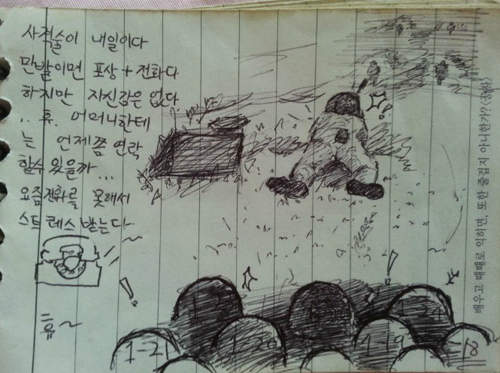 사격술이 내일이다
만발이면 포상 + 전화다
하지만 자신감은 없다
.. 휴. 어머니한테
는 언제쯤 연락
할수 있을까 ...
요즘전화를 못해서
스트레스 받는다
휴~
1-21
1-20
1-19
-18
배우고 때때로 익히면, 또한 즐겁지 아니한가?